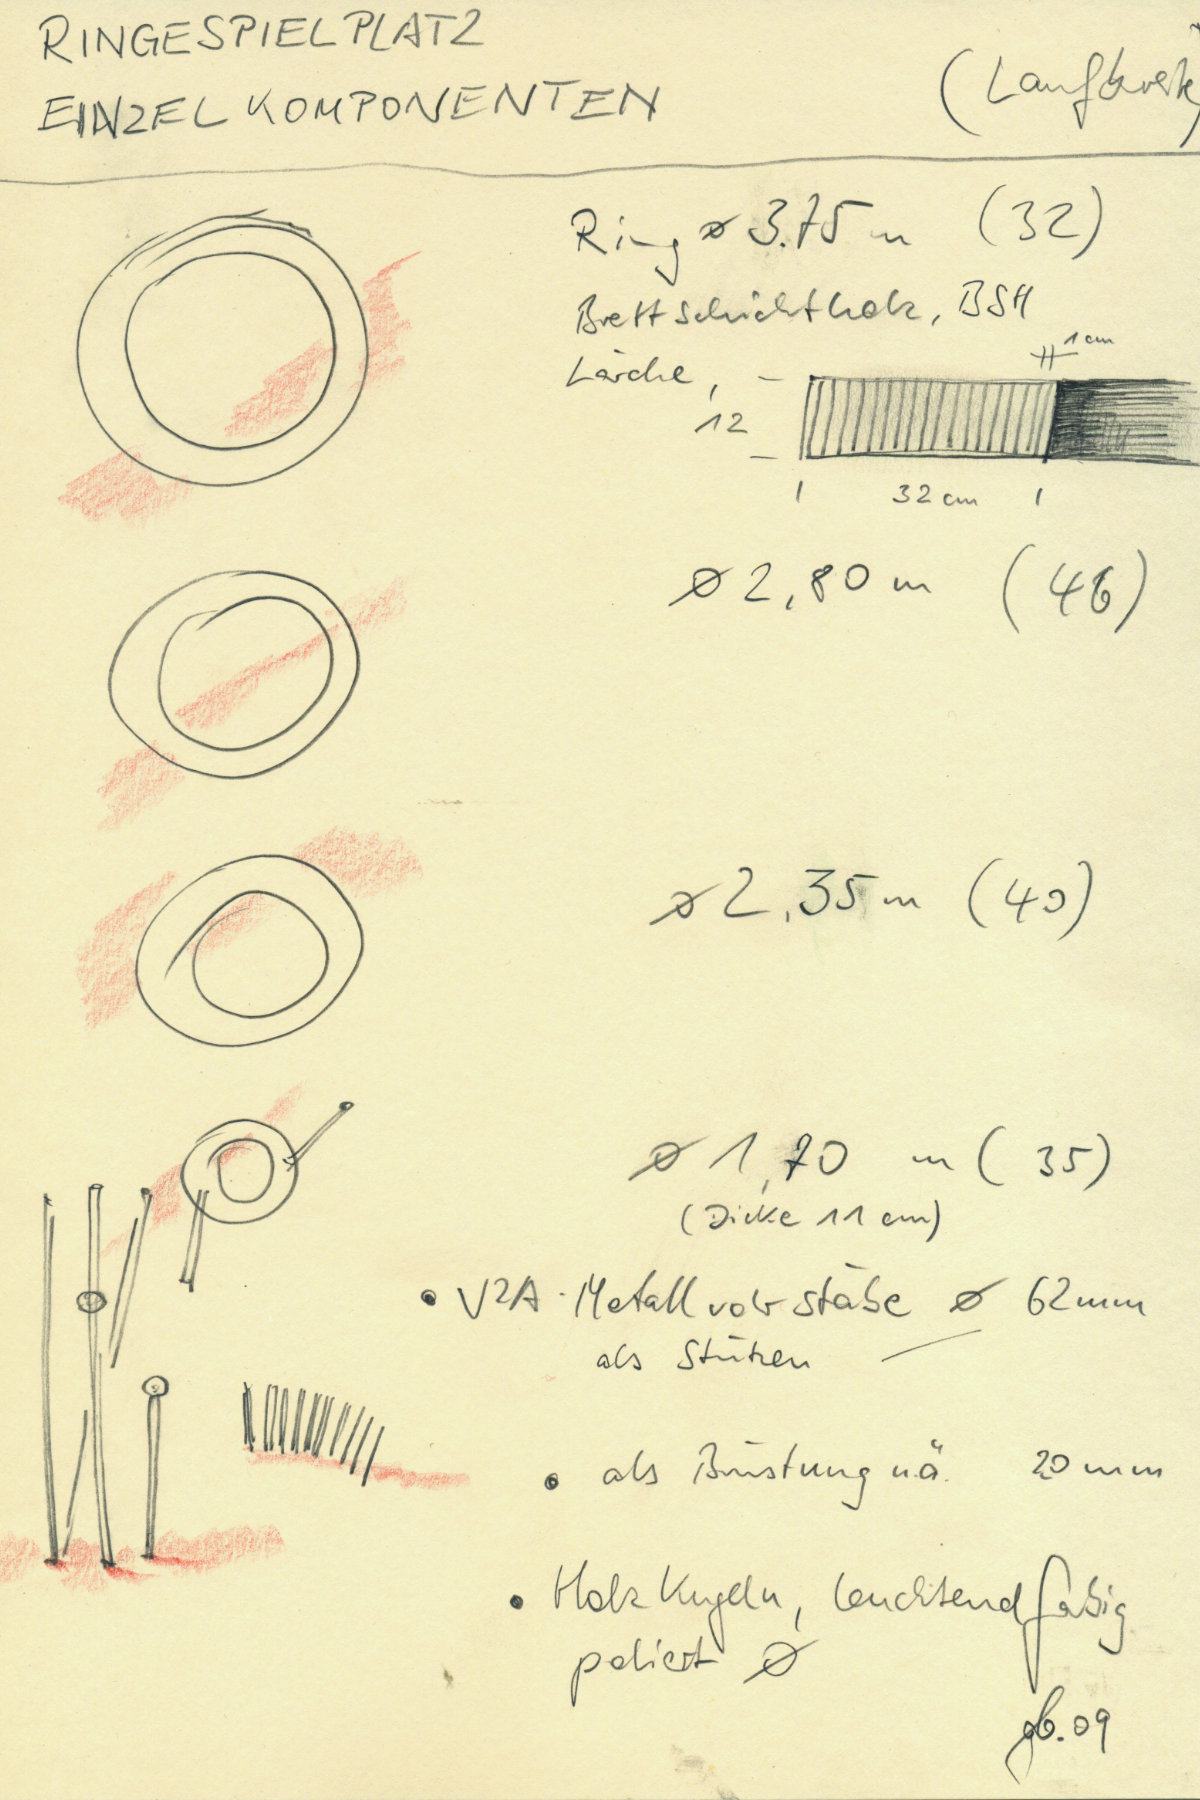 RINGESPIELPLATZ
EINZELKOMPONENTEN
Ring ø 3.75 m (32)
Brettschichtholz, BSH
Lärche,
1 cm
12
32 cm
ø 2,80 m (46)
ø 2,35 m (40)
ø 1,70 m (35)
(Dicke 11 cm)
• V2A-Metallrohrstäbe ø 62mm
als Stützen
• als Brüstung u.ä. 20 mm
• Holzkugeln, leuchtend farbig
poliert ø
gb.09